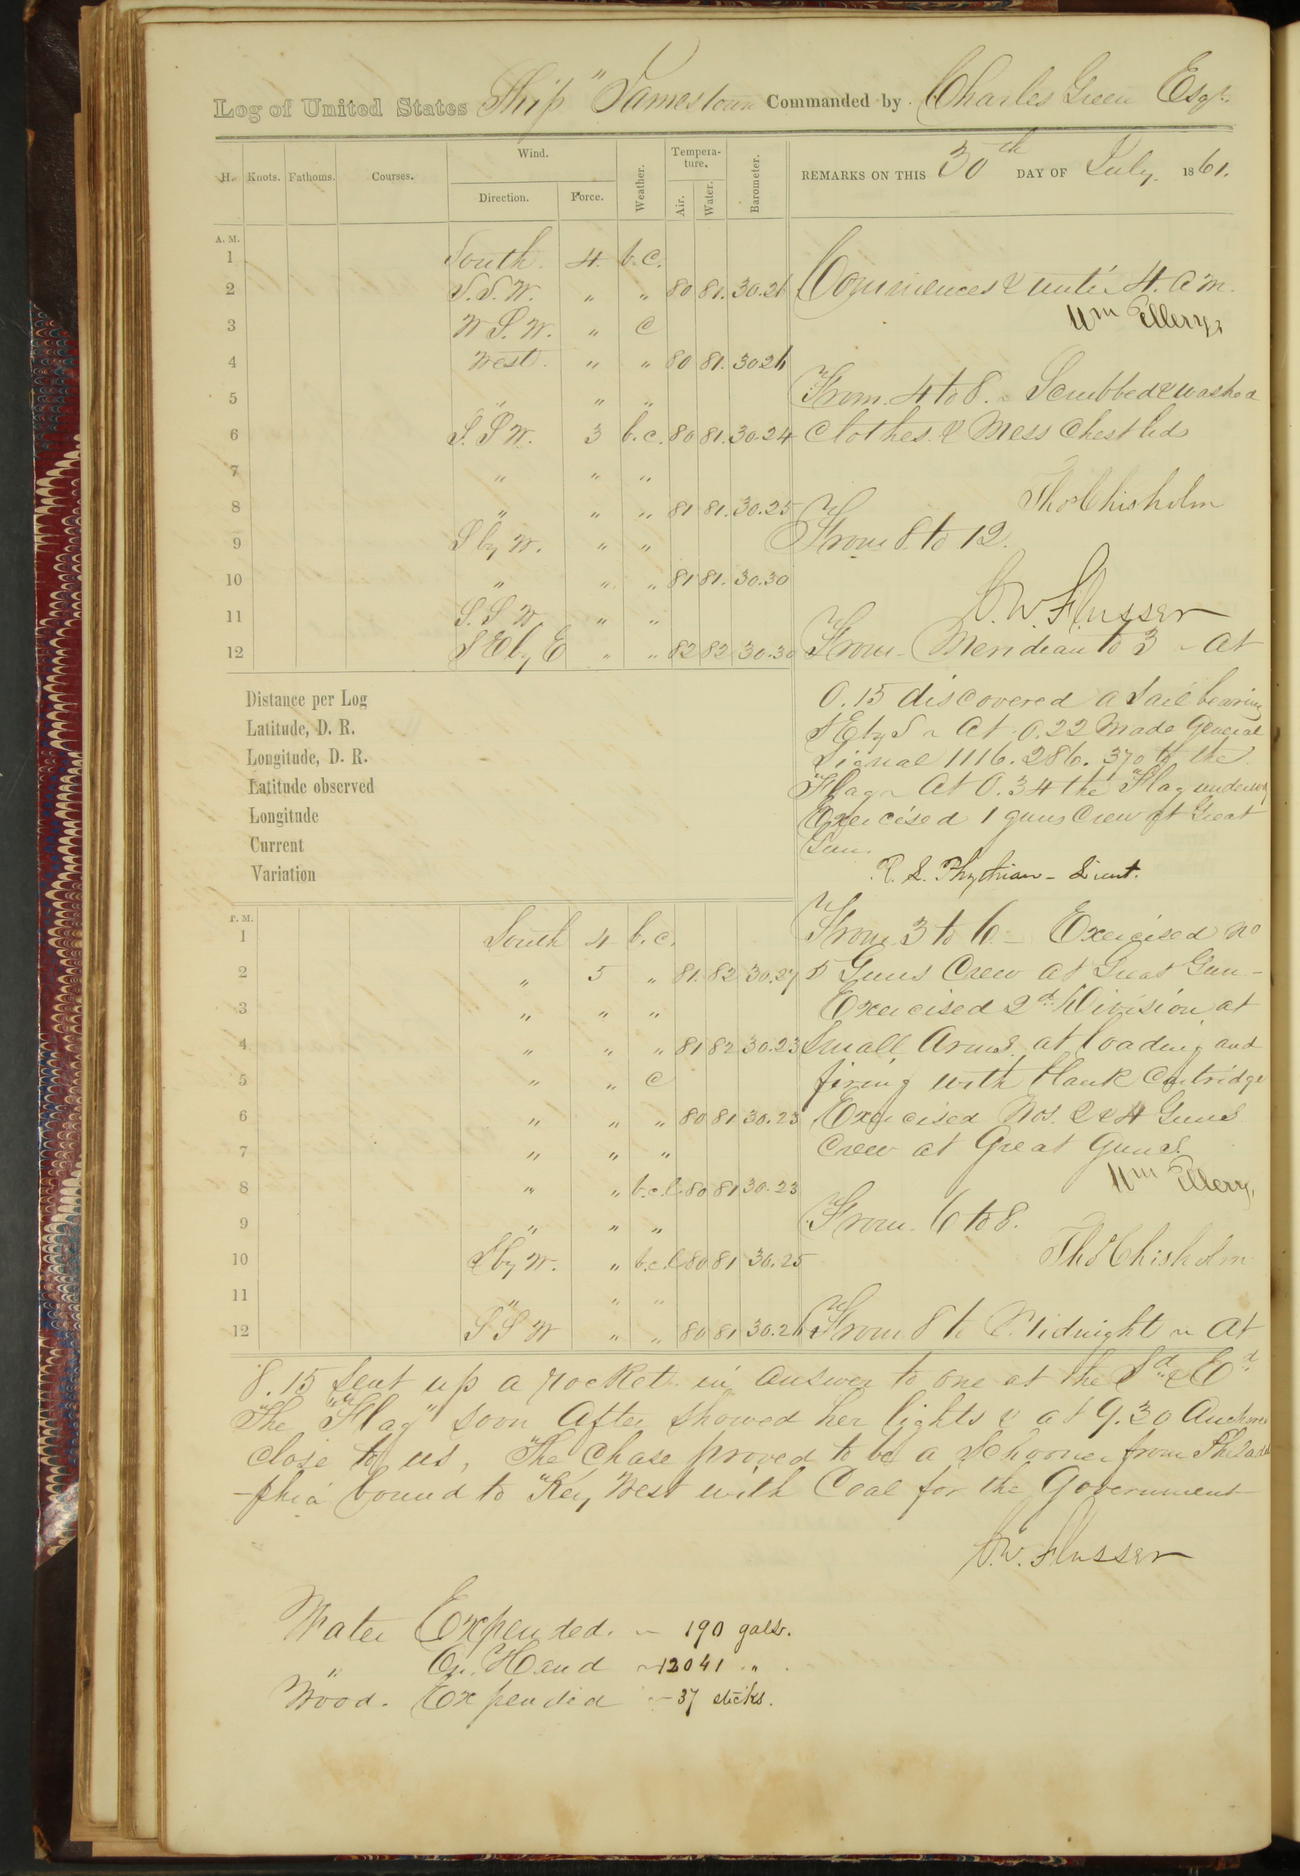 Log of United States Ship "Jamestown Commanded by Charles Green Esqr.
H. Knots. Fathoms. Courses. Wind. Direction. Force. Weather. Tempera-ture. Air. Water. Barometer. REMARKS ON THIS 30th DAY OF July, 1861.
A. M.
1 South 4 b.c.
2 S.S.W. " " 80 81. 30.26 Commences & until 4. a m.
3 W S. W. " c Wm Ellery,
4 West. " " 80 81. 30 26
5 " " " From 4 to 8. ~ Scrubbed & washed
6 S. S W. 3 b.c. 80 81. 30.24 clothes & Mess Chest lids
7 " " "
8 " " " 81 81. 30.25 Thos Chisholm
9 S by W. " " From 8 to 12.
10 " " " 81 81. 30.30
11 S. S W. " " C. W. Flusser
12 S E by E " " 82 82 30.30 From Meridian to 3 ~ At
Distance per Log 0.15 discovered a Sail bearing
Latitude, D. R. S E by S ~ At 0.22 Made General
Longitude, D. R. Signal 1116. 286. 370 to the
Latitude observed "Flag ~ At 0.34 the "Flag underway
Longitude Exercised 1 guns Crew at Great
Current Gun.
Variation R. L. Phythian - Lieut.
P. M.
1 South 4 b.c. From 3 to 6 - Exercised No
2 " 5 " 81. 82 30.27 5 Guns Crew at Great Gun -
3 " " " Exercised 2d Division at
4 " " " 81 82 30.23 Small Arms at loading and
5 " " c firing with blank Cartridge
6 " " " 80 81 30.23 Exercised Nos. 2 & 4 Guns
7 " " " Crew at Great Guns.
8 " " b.c.l. 80 81 30.23 Wm Ellery,
9 " " " From 6 to 8.
10 S by W. " b.c.l 80 81 30.25 Thos Chisholm
11 " " "
12 S S W " " 80 81 30.26 From 8 to Midnight ~ At
8.15 sent up a rocket in answer to one at the Sd & Ed
The "Flag" soon after showed her lights & at 9.30 Anchored
close to us, The chase proved to be a Schooner from Philadel
-phia bound to Key West with Coal for the Government
C. W. Flusser
Water Expended. ~ 190 galls.
" On Hand ~ 12041 "
Wood. Expended ~ 37 sticks.